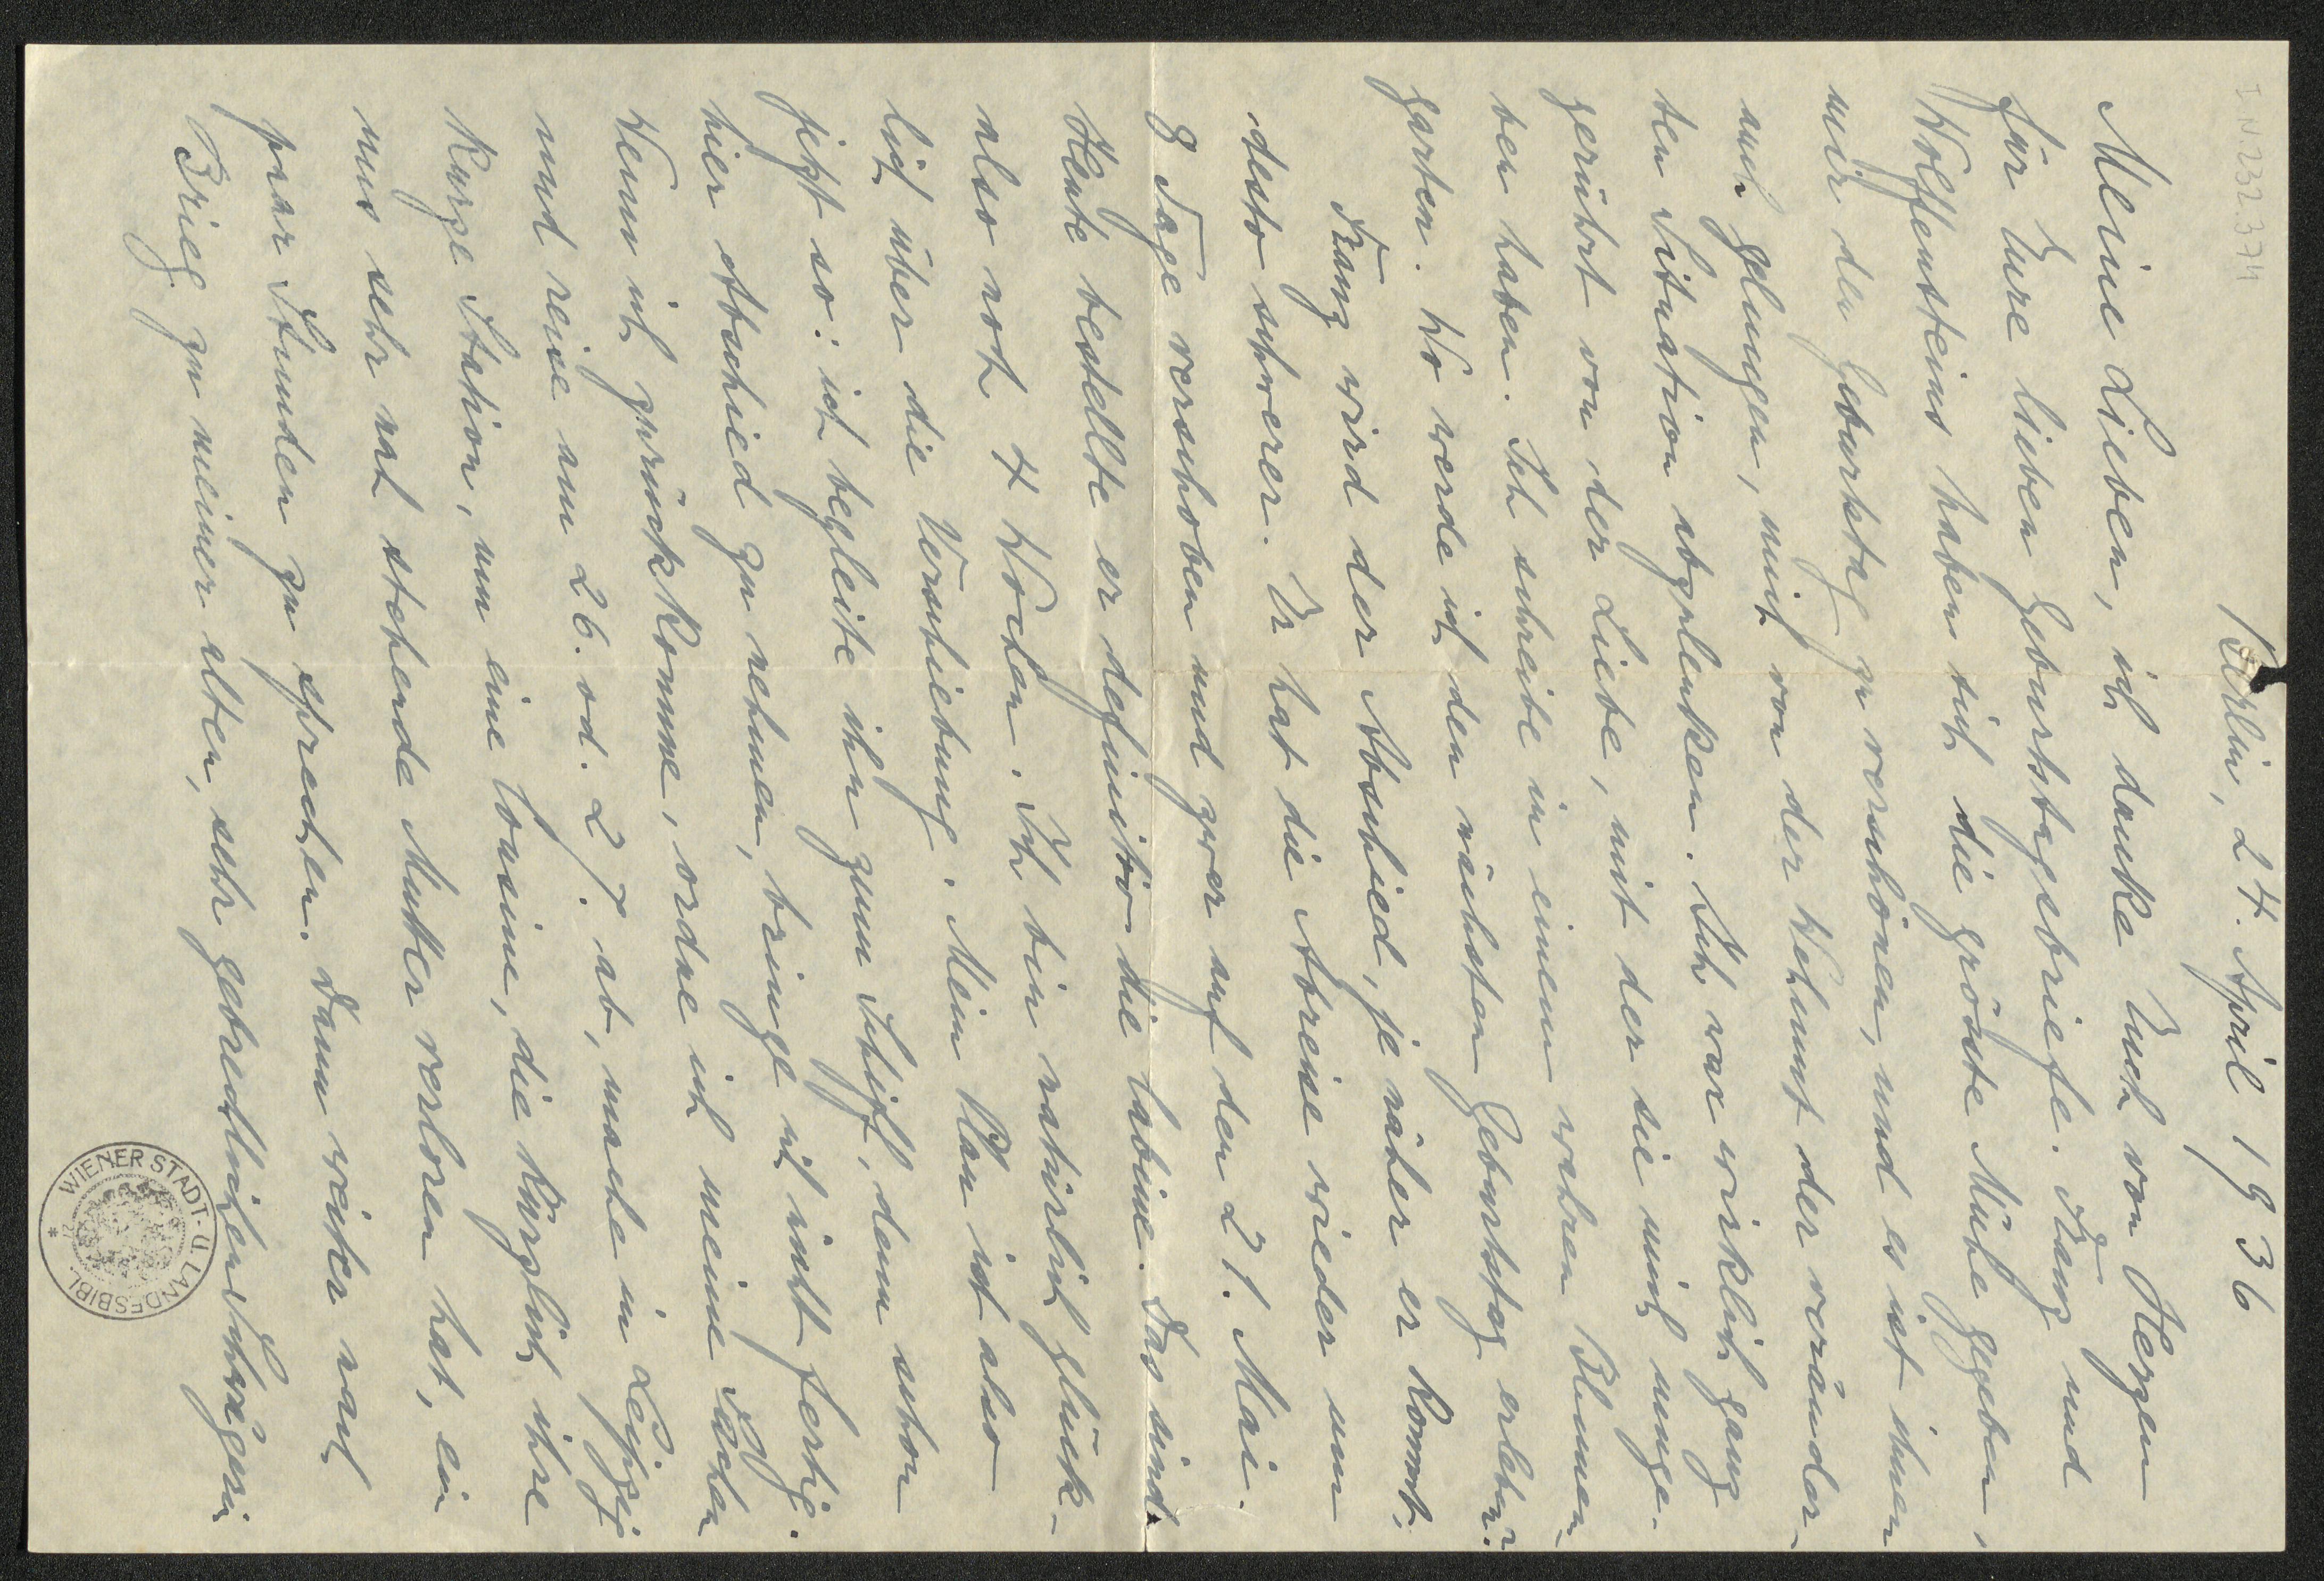 IN 232.374
Berlin, 24. April 1936
Meine Lieben, ich danke Euch von Herzen
für Eure lieben Geburtstagsbriefe. Franz und
Wolffensteins haben sich die grösste Mühe gegeben,
mir den Geburtstag zu verschönen, und es ist ihnen
auch gelungen, mich von der Wehmut der veränder-
ten Situation abzulenken. Ich war wirklich ganz
gerührt von der Liebe, mit der sie mich umge-
ben haben. Ich schreibe in einem wahren Blumen-
garten. Wo werde ich den nächsten Geburtstag erleben?
Franz wird der Abschied, je näher er kommt,
desto schwerer. Er hat die Abreise wieder um
8 Tage verschoben und zwar auf den 21. Mai.
Heute bestellte er definitiv die Cabine. Das sind
also noch 4 Wochen. Ich bin natürlich glück-
lich über die Verschiebung. Mein Plan ist also
jetzt so: ich begleite ihn zum Schiff, denn schon
hier Abschied zu nehmen, bringe ich nicht fertig.
Wenn ich zurückkomme, ordne ich meine Sachen
und reise am 26. od. 27. ab, mache in Leipzig
kurze Station, um eine Cousine, die kürzlich ihre
uns sehr nah stehende Mutter verloren hat, ein
paar Stunden zu sprechen. Dann weiter nach
Brieg zu meiner alten, sehr gebrechlichen Schwägerin
WIENER STADT- U. LANDESBIBL.